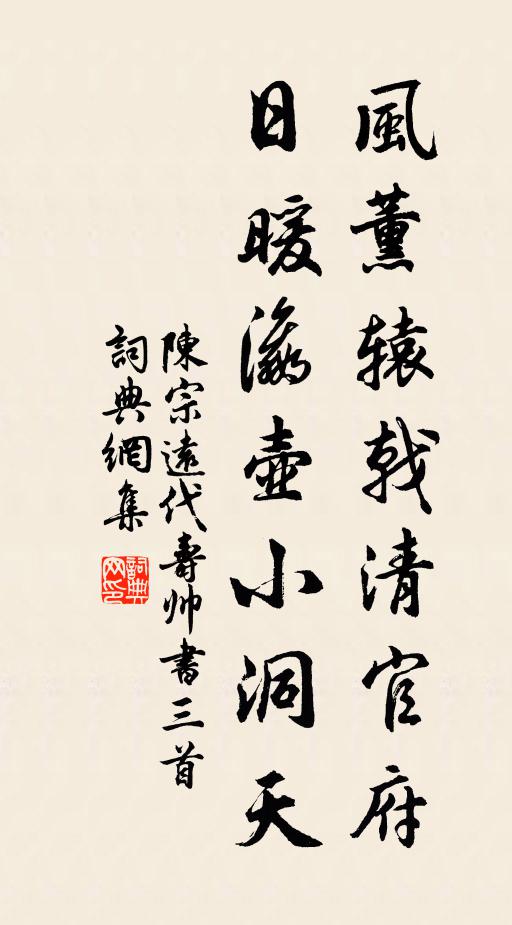 風薰辕戟清官府
日暖瀛壺小洞天
陳宗遠代壽帅書三首
詞典網集
詞典网印